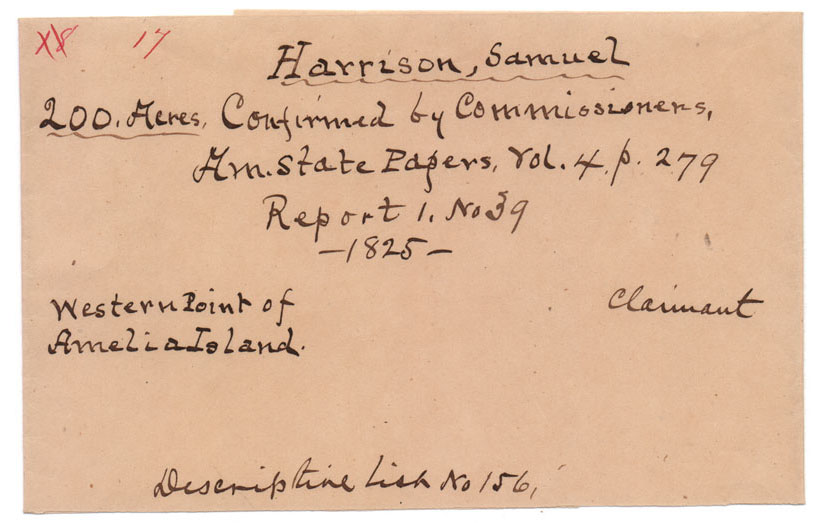 17
Harrison, Samuel
200. Acres, Confirmed by Commissioners,
Am. State Papers, Vol. 4, p. 279
Report 1. No 39
—1825—
Western Point of
Amelia Island.
Claimant
Descriptive List No 156,